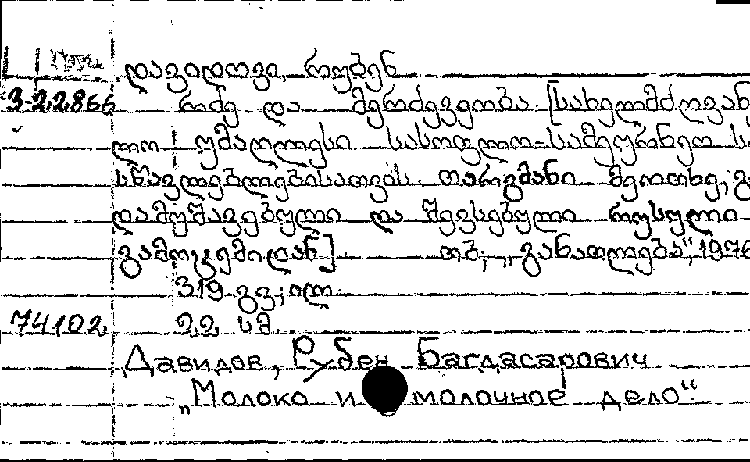 დავიდოვი, რუბენ
3-22.866 რძე და მერძევეობა [სახელმძღვან
ლო უმაღლესი სასოფლო-სამეურნეო ს
სწავლებლებისათვის თარგმანი მეოთხე, გ
დამუშავებული და შევსებული რუსული
გამოცემიდან] თბ., „განათლება", 1976
319 გვ; ილ.
74102 22 სმ
Давидов, Рубен Багдасарович
„Молоко и молочное дело".